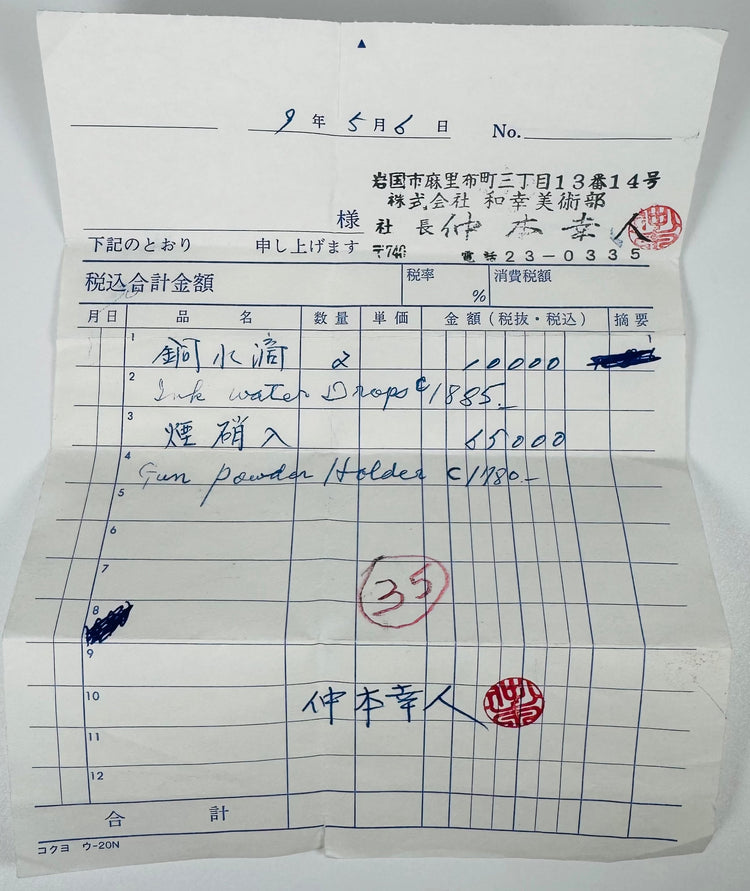 ▲
9年5月6日 No.
岩国市麻里布町三丁目13番14号
株式会社 和幸美術部
様 社長 仲本幸人
下記のとおり 申し上げます 〒740 電話23-0335
税込合計金額 税率 % 消費税額
月日 品名 数量 単価 金額(税抜・税込) 摘要
1 銅水滴 2 10000
2 Ink water Drops C1885.-
3 煙硝入 65000
4 Gun powder Holder C1780.-
5
6
7
35
8
9
10 仲本幸人
11
12
合計
コクヨ ウ-20N